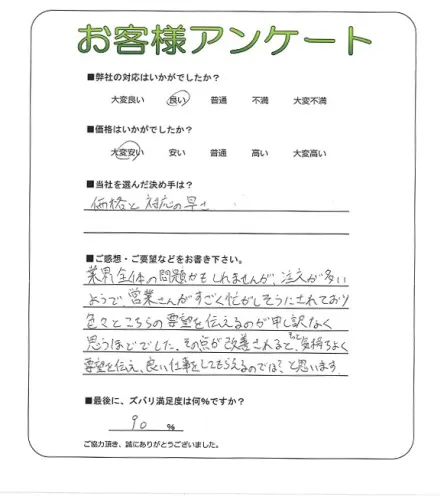 お客様アンケート
■弊社の対応はいかがでしたか？
大変良い 良い 普通 不満 大変不満
■価格はいかがでしたか？
大変安い 安い 普通 高い 大変高い
■当社を選んだ決め手は？
価格と対応の早さ
■ご感想・ご要望などをお書き下さい。
業界全体の問題かもしれませんが、注文が多い
ようで営業さんがすごく忙がしそうにされており
色々とこちらの要望を伝えるのが申し訳なく
思うほどでした。その点が改善されると、もっと気持ちよく
要望を伝え、良い仕事をしてもらえるのでは？と思います
■最後に、ズバリ満足度は何％ですか？
90 %
ご協力頂き、誠にありがとうございました。